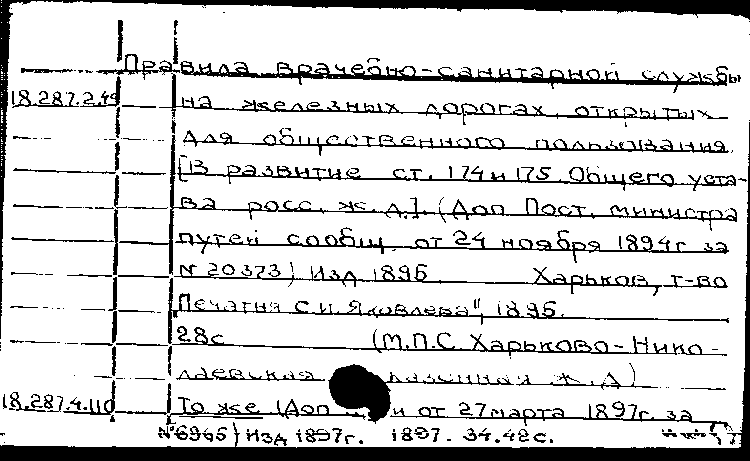 Правила врачебно-санитарной службы
18.287.2.49 на железных дорогах, открытых
для общественного пользования.
[В развитие ст. 174 и 175 Общего уста-
ва росс. ж. д.]. (Доп Пост. министра
путей сообщ. от 24 ноября 1894г за
№ 20373) Изд 1895 Харьков, т-во
"Печатня С.И. Яковлева", 1895.
28с (М.П.С. Харьково-Нико-
лаевская казенная ж. д)
18.287.4.110 То же (Доп и от 27 марта 1897г. за
№6965) Изд 1897г. 1897. 34.42с.